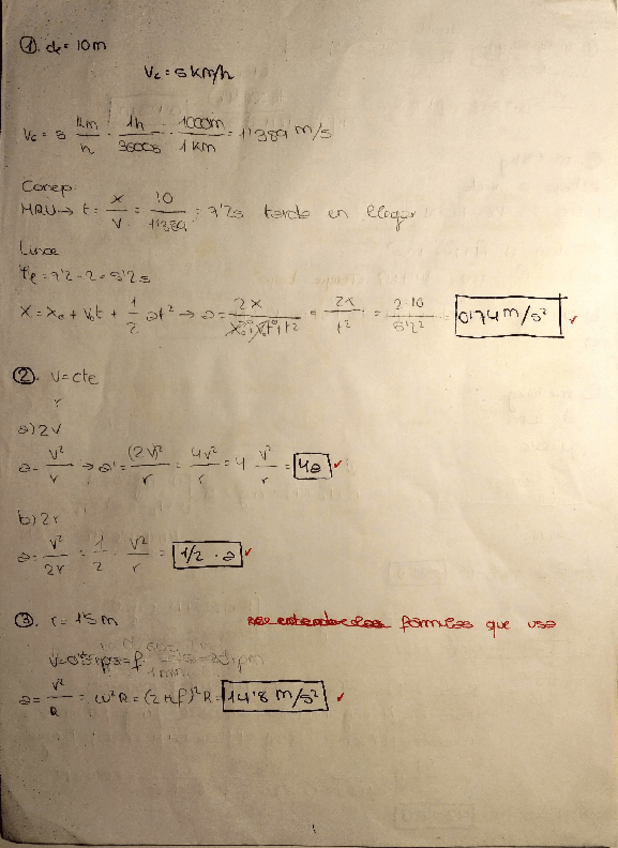 ①. dc = 10m
Vc = 5 km/h
Vc = 5 km/h · 1h/3600s · 1000m/1km = 1'389 m/s
Conejo
MRU → t = x/v = 10/1'389 = 7'2s tarda en llegar
Lince
tl = 7'2 - 2 = 5'2s
x = x₀ + v₀t + 1/2 at² → a = 2x/x₀+v₀t+t² = 2x/t² = 2·10/5'2² = 0'74 m/s² ✓
②. v = cte
r
a) 2v
a = v²/r → a' = (2v)²/r = 4v²/r = 4 v²/r = 4a ✓
b) 2r
a = v²/2r = 1/2 · v²/r = 1/2 · a ✓
③. r = 1'5 m
fórmulas que usa
a = v²/R = ω²R = (2πf)²R = 14'8 m/s² ✓